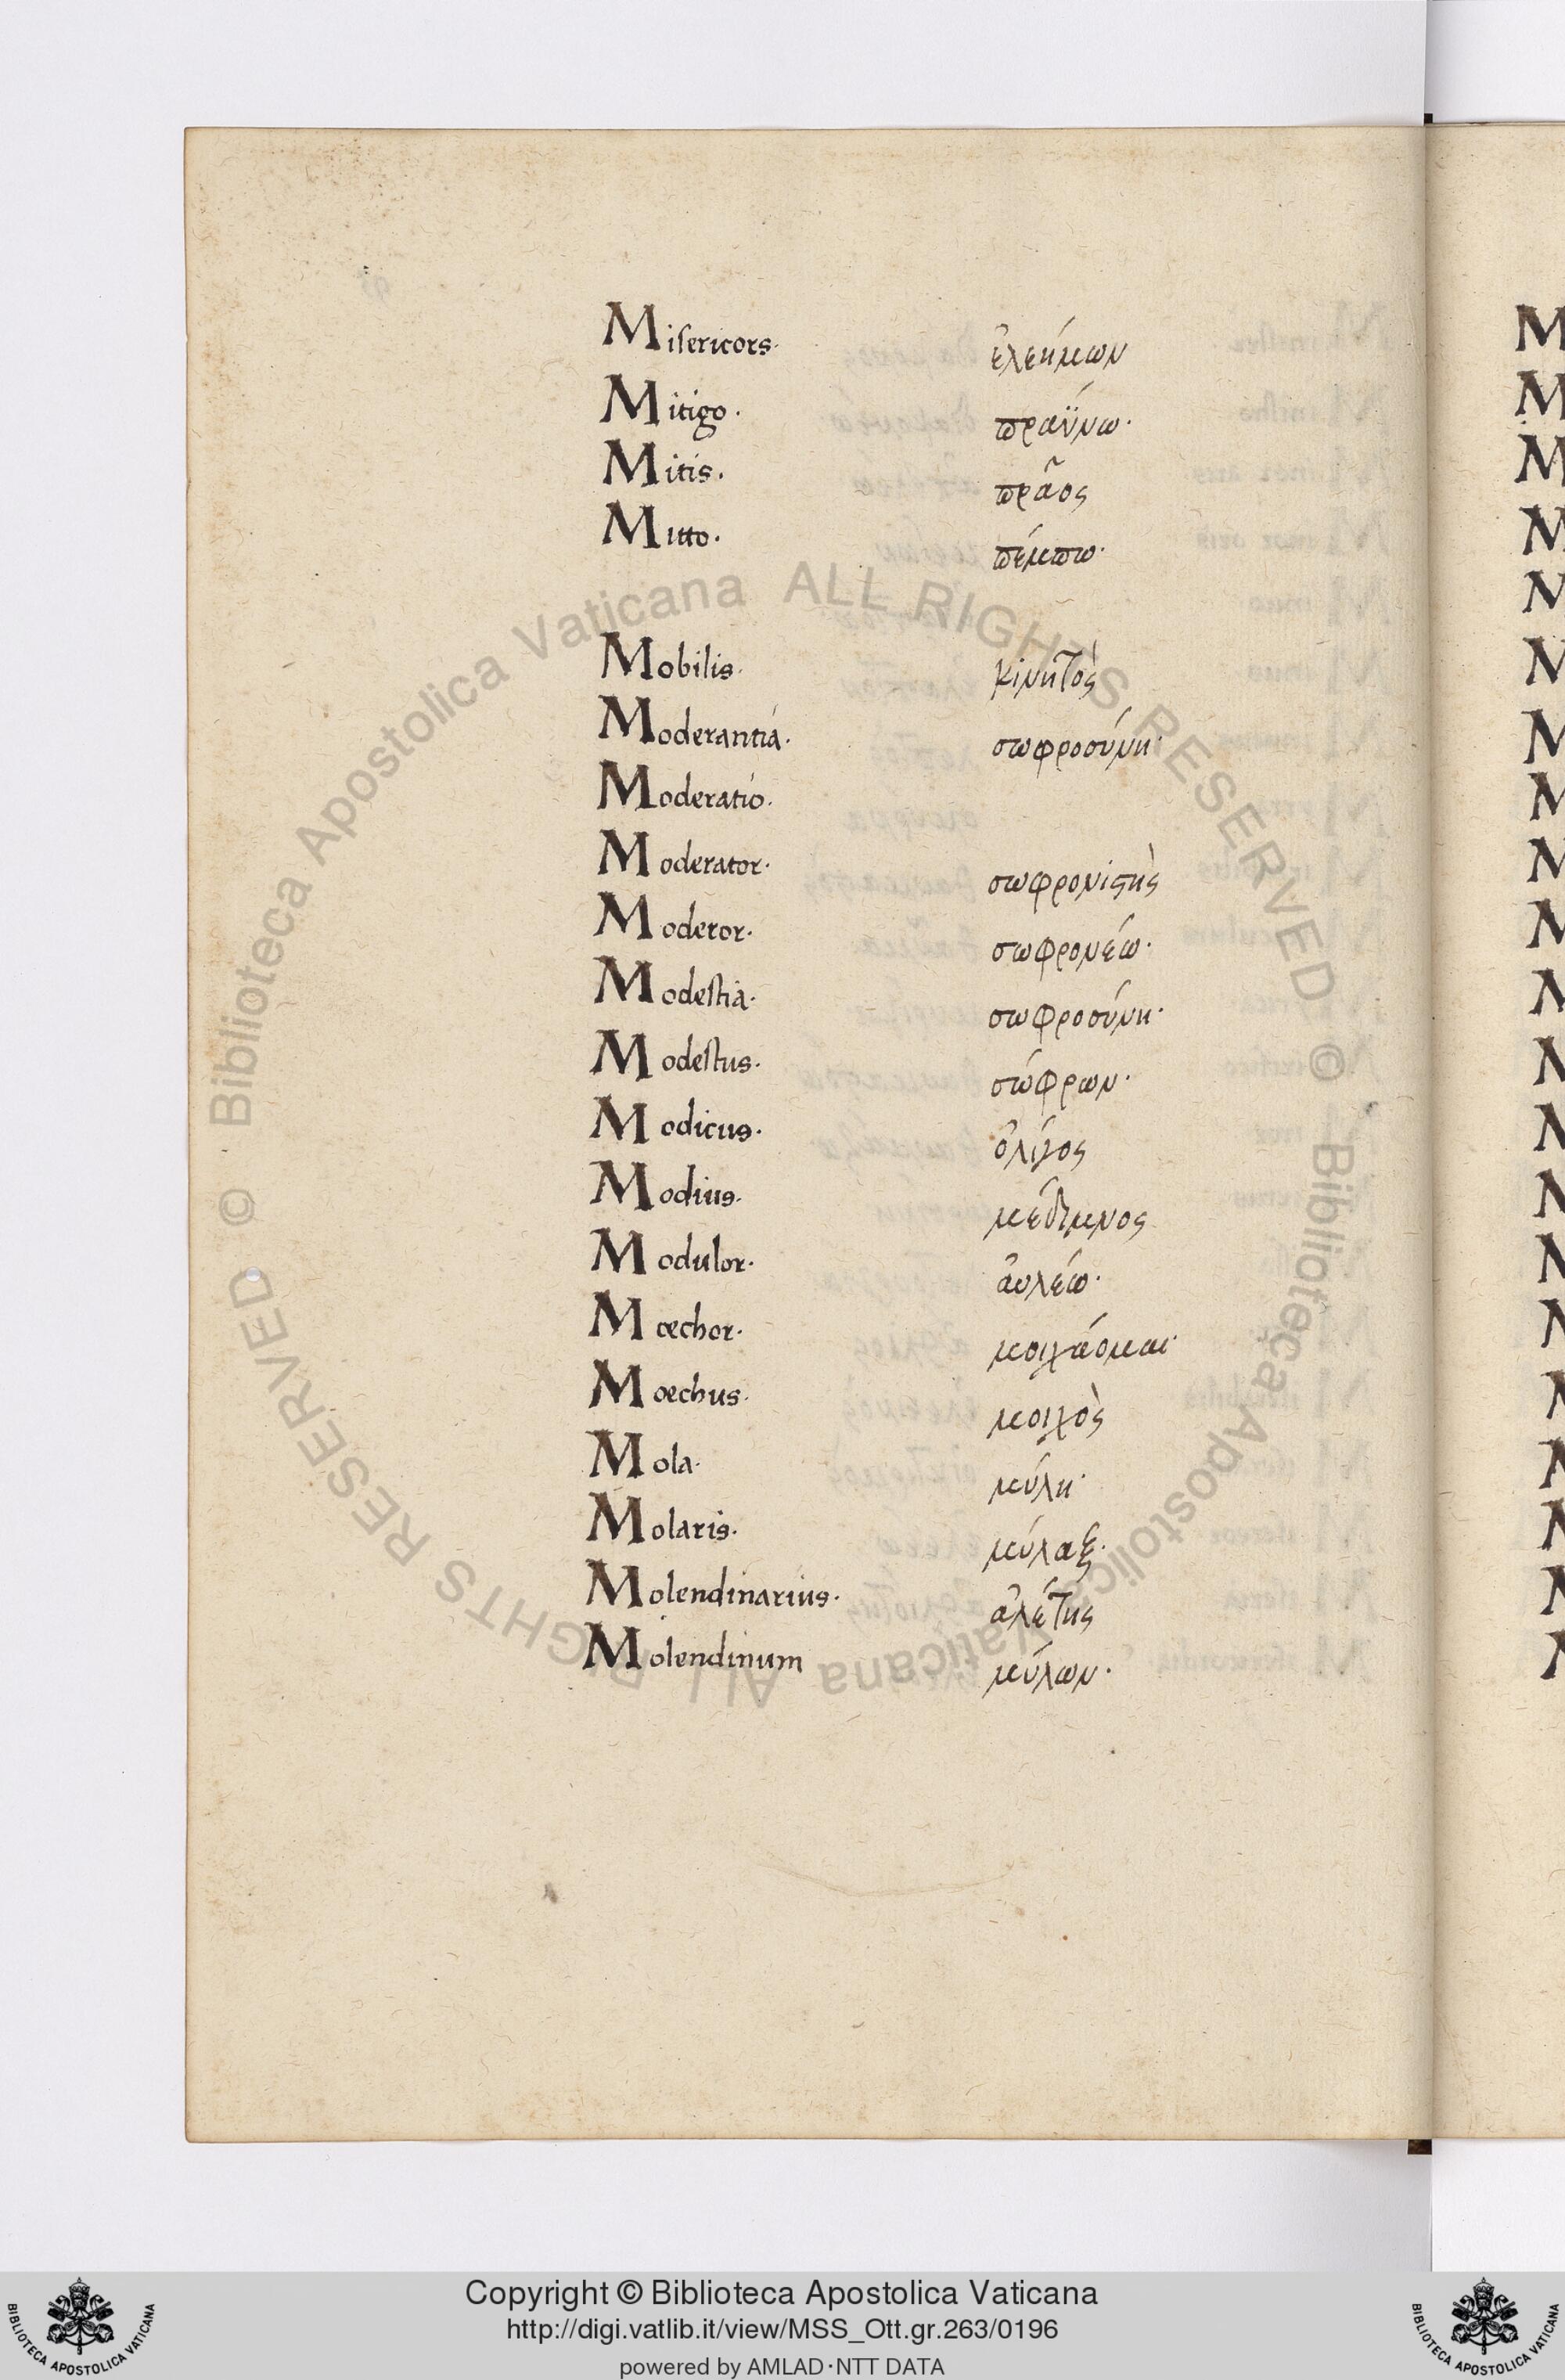 Misericors. ἐλεήμων
Mitigo. πραΰνω.
Mitis. πρᾶος
Mitto. πέμπω.
Mobilis. κινητὸς
Moderantia. σωφροσύνη.
Moderatio.
Moderator. σωφρονιστὴς
Moderor. σωφρονέω.
Modestia. σωφροσύνη.
Modestus. σώφρων.
Modicus. ὀλίγος
Modius. μέδιμνος
Modulor. ἀυλέω.
Mœchor. μοιχάομαι.
Moechus. μοιχὸς
Mola. μύλη.
Molaris. μύλαξ.
Molendinarius. ἀλέτης
Molendinum μύλων.
© Biblioteca Apostolica Vaticana ALL RIGHTS RESERVED © Biblioteca Apostolica Vaticana ALL RIGHTS RESERVED
Copyright © Biblioteca Apostolica Vaticana
http://digi.vatlib.it/view/MSS_Ott.gr.263/0196
powered by AMLAD·NTT DATA
BIBLIOTECA APOSTOLICA VATICANA
BIBLIOTECA APOSTOLICA VATICANA